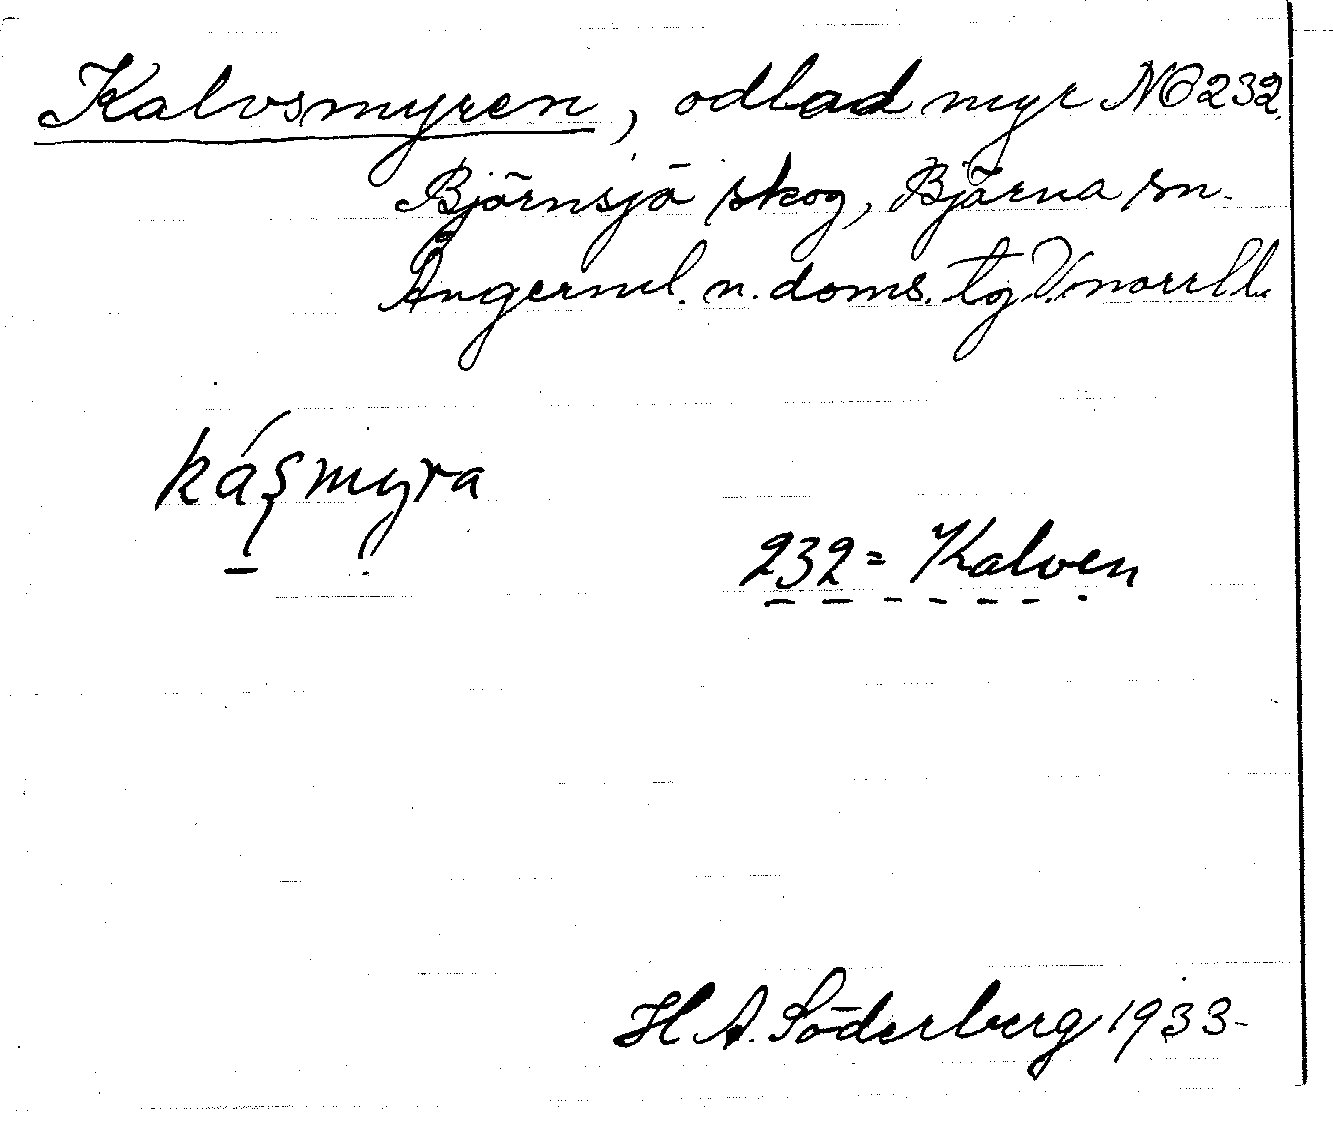 Kalvsmyren, odlad myr NO 232.
Björnsjö skog, Björna sn.
Ångerml. n. doms. tg V.norrl l.
káʂmyra
232 = Kalven
H A. Söderberg 1933-